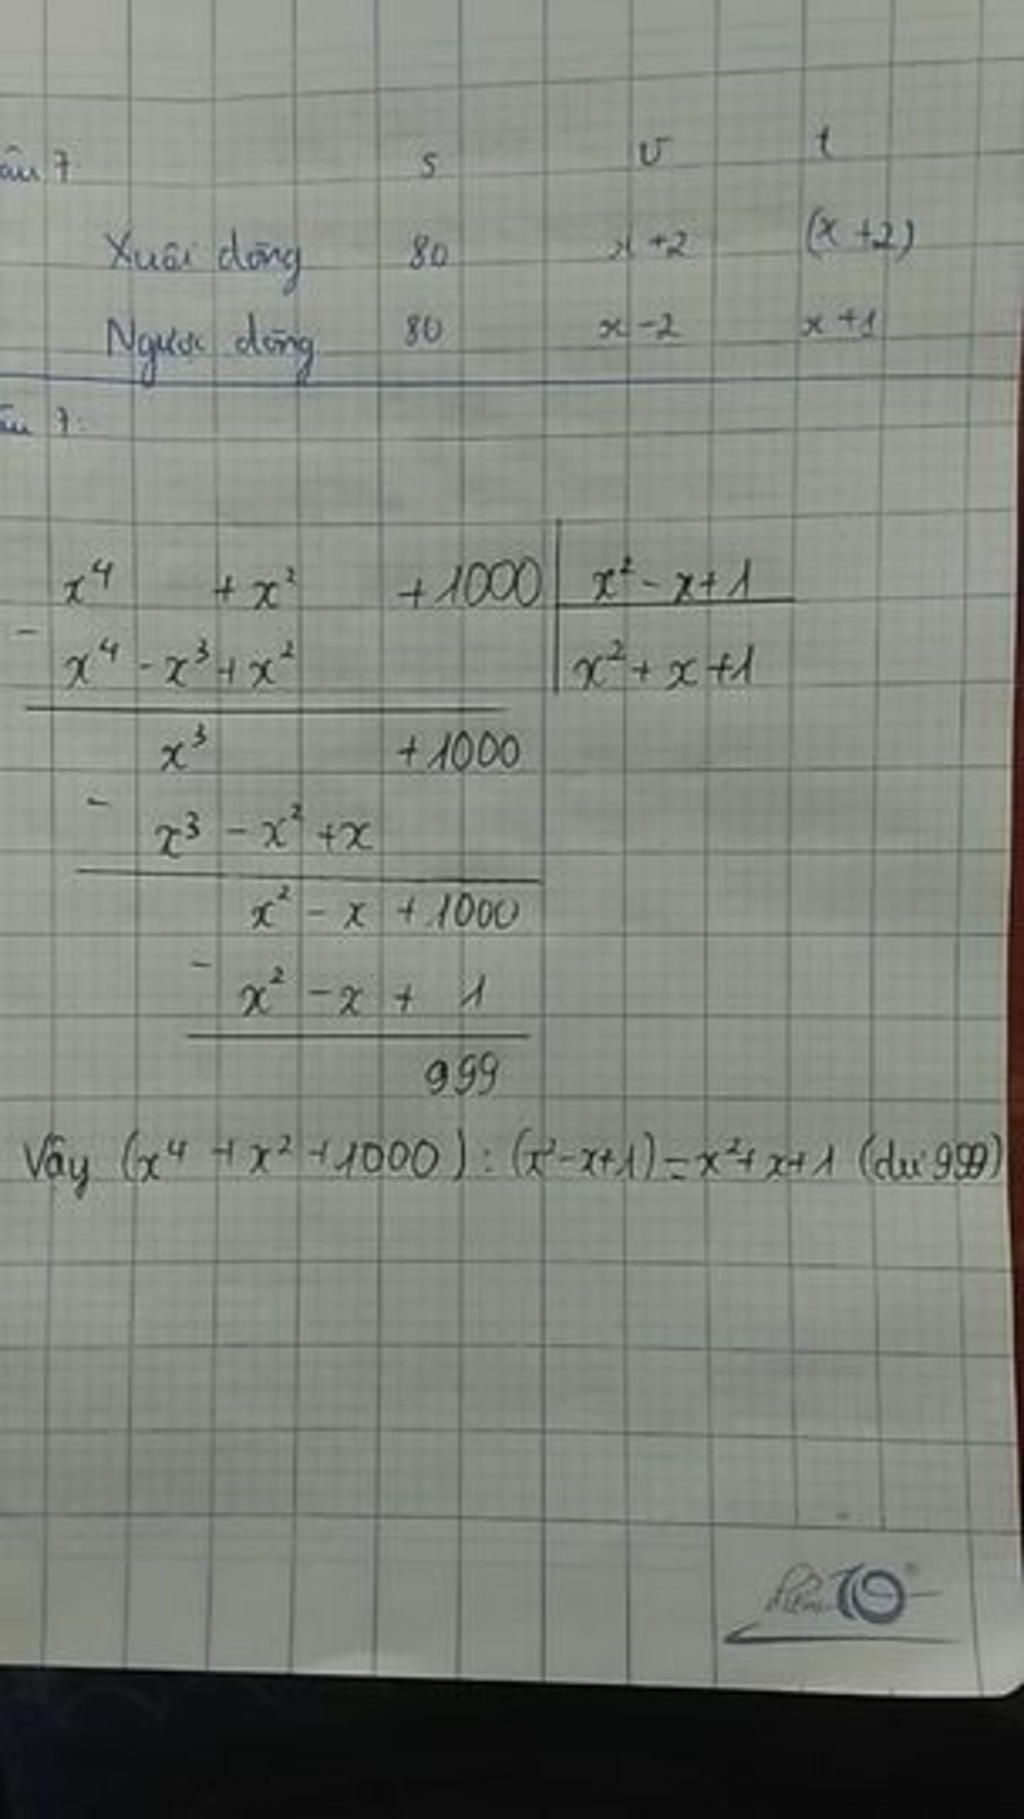 7
s v t
Xuôi dòng 80 x+2 (x+2)
Ngược dòng 80 x-2 x+1
7.
x⁴ + x² + 1000 | x² - x + 1
- x⁴ - x³ + x² | x² + x + 1
x³ + 1000
- x³ - x² + x
x² - x + 1000
- x² - x + 1
999
Vậy (x⁴ + x² + 1000) : (x² - x + 1) = x² + x + 1 (dư 999)
điểm 10